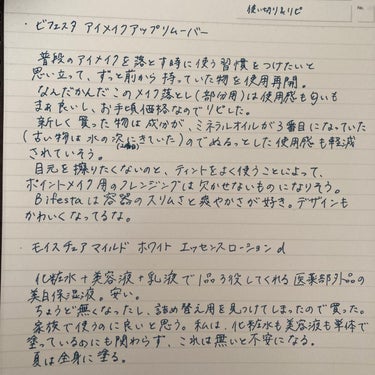 使い切り&リピ
No.
・ビフェスタ アイメイクアップリムーバー
普段のアイメイクを落とす時に使う習慣をつけたいと
思い立って、ずっと前から持っていた物を使用再開。
なんだかんだこのメイク落とし(部分用)は使用感も匂いも
まぁ良いし、お手頃価格なのでリピした。
新しく買った物は成分が、ミネラルオイルが3番目になっていた
(古い物は水の次にきていた)のでぬるっとした使用感も軽減
されていそう。
目元を擦りたくないのと、ティントをよく使うことによって、
ポイントメイク用のクレンジングは欠かせないものになりそう。
Bifestaは容器のスリムさと爽やかさが好き。デザインも
かわいくなってるな。
・モイスチュアマイルド ホワイト エッセンスローションd
化粧水+美容液+乳液で1品3役してくれる医薬部外品の
美白保湿液。安い。
ちょうど無くなったし、詰め替え用を見つけてしまったので買った。
家族で使うのに良いと思う。私は、化粧水も美容液も単体で
塗っているのにも関わらず、これは無いと不安になる。
夏は全身に塗る。